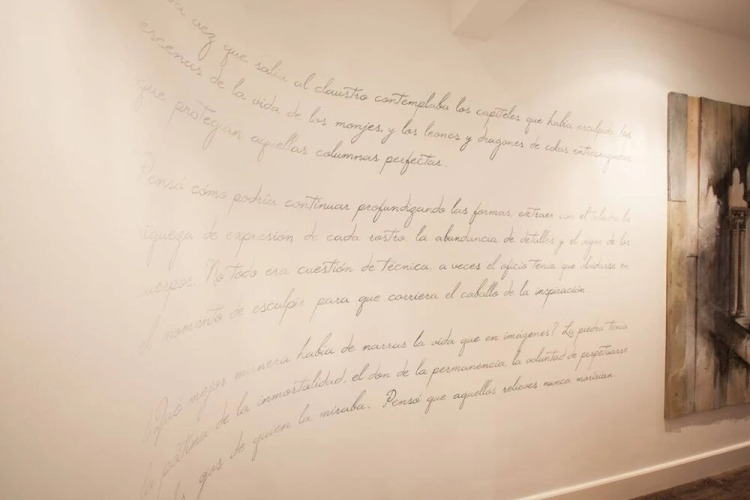 vez que salía al claustro contemplaba los capiteles que había esculpido, las
escenas de la vida de los monjes, y los leones y dragones de colas entrelazadas
que protegían aquellas columnas perfectas.
Pensó cómo podría continuar profundizando las formas, extraer con el taladro la
riqueza de expresión de cada rostro, la abundancia de detalles y el vigor de los
cuerpos. No todo era cuestión de técnica, a veces el oficio tenía que olvidarse en
el momento de esculpir para que corriera el caballo de la inspiración.
¿Qué mejor manera había de narrar la vida que en imágenes? La piedra tenía
la pátina de la inmortalidad, el don de la permanencia, la voluntad de perpetuarse
ojos de quien la miraba. Pensó que aquellos relieves nunca morirían.